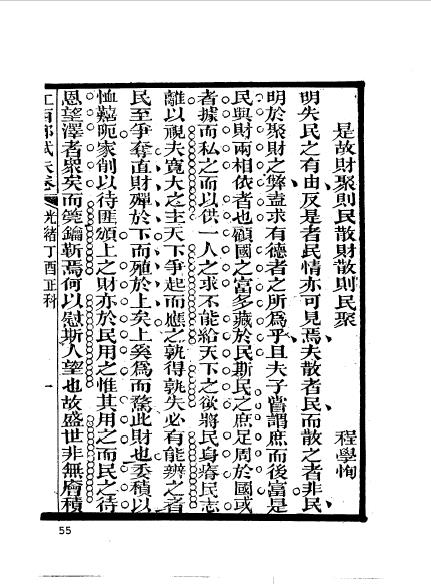 是故財聚則民散財散則民聚
程學恂
明失民之有由反是者民情亦可見焉夫散者民而散之者非民
明於聚財之弊盍求有德者之所為乎且夫子嘗謂庶而後富是
民與財兩相依者也顧國之富多藏於民斯民之庶足周於國或
者據而私之而以供一人之求不能給天下之欲將民身瘠民志
離以視夫寬大之主天下爭起而應之孰得孰失必有能辨之者
民至爭奪直財殫於下而殖於上矣上奚為而鶩此財也委積以
恤囏阨家削以待匪頒上之財亦於民用之惟其用之而民之待
恩望澤者眾矣而筦鑰靳焉何以慰斯人望也故盛世非無儈積
江西鄉試朱卷
光緒丁酉正科
一
55